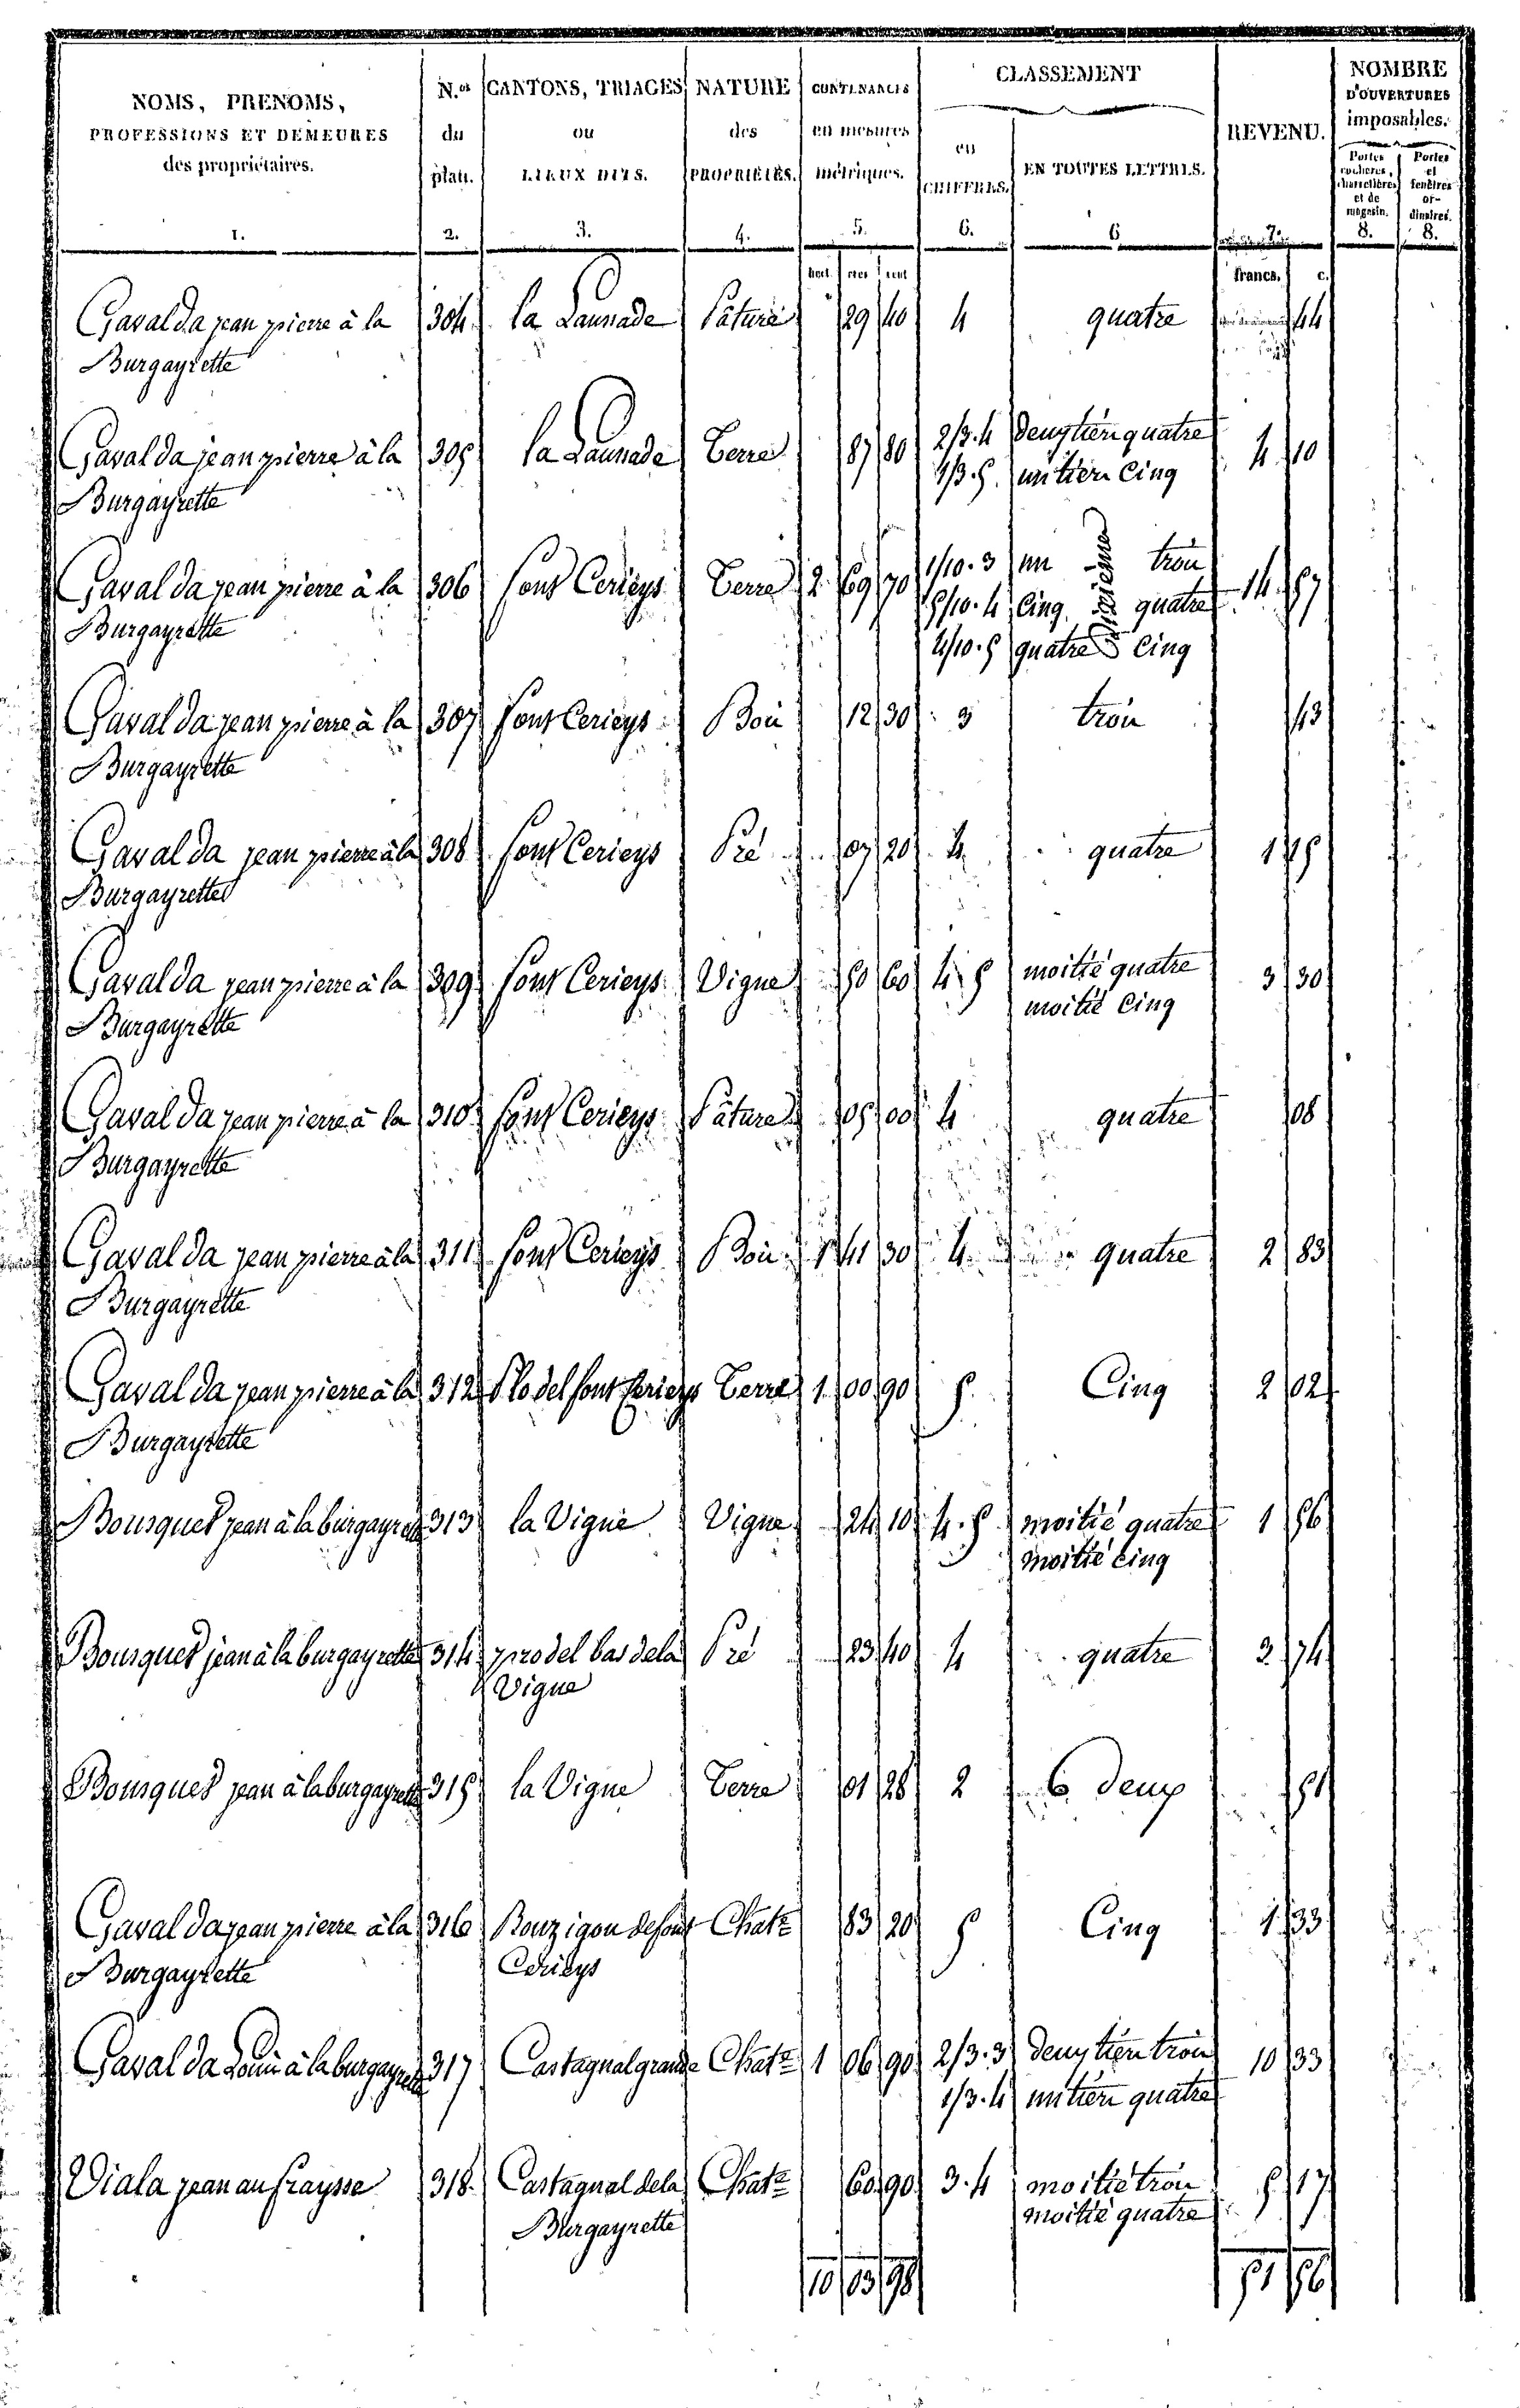 NOMS, PRENOMS,
PROFESSIONS ET DEMEURES
des propriétaires.
1.
N.os
du
plan.
2.
CANTONS, TRIAGES
ou
LIEUX DITS.
3.
NATURE
des
PROPRIÉTÉS.
4.
CONTENANCES
en mesures
métriques.
5.
CLASSEMENT
en
CHIFFRES.
6.
EN TOUTES LETTRES.
6
REVENU.
7.
NOMBRE
D'OUVERTURES
imposables.
Portes cochères, charretières et de magasin.
8.
Portes et fenêtres or- dinaires.
8.
hect. ares cent francs. c.
Gavalda jean pierre à la 304 la Launade Pâture 29 40 4 quatre 44
Burgayrette
Gavalda jean pierre à la 305 la Launade Terre 87 80 2/3.4 deux tiers quatre 4 10
Burgayrette 1/3.5 un tiers Cinq
Gavalda jean pierre à la 306 font Cerieys Terre 2 69 70 1/10.3 un dixieme trois 14 57
Burgayrette 5/10.4 Cinq quatre
4/10.5 quatre Cinq
Gavalda jean pierre à la 307 font Cerieys Bois 12 30 3 trois 43
Burgayrette
Gavalda jean pierre à la 308 font Cerieys Pré 07 20 4 quatre 1 15
Burgayrette
Gavalda jean pierre à la 309 font Cerieys Vigne 50 60 4 5 moitié quatre 3 30
Burgayrette moitié Cinq
Gavalda jean pierre à la 310 font Cerieys Pâture 05 00 4 quatre 08
Burgayrette
Gavalda jean pierre à la 311 font Cerieys Bois 1 41 30 4 quatre 2 83
Burgayrette
Gavalda jean pierre à la 312 Plo del font Cerieys Terre 1 00 90 5. Cinq 2 02
Burgayrette
Bousquet jean à la burgayrette 313 la Vigne Vigne 24 10 4.5 moitié quatre 1 56
moitié cinq
Bousquet jean à la burgayrette 314 pro del bas de la Pré 23 40 4 quatre 3 74
Vigne
Bousquet jean à la burgayrette 315 la Vigne Terre 01 28 2 deux 51
Gavalda jean pierre à la 316 Bouzigou de font Chatz 83 20 5 Cinq 1 33
Burgayrette Cerieys
Gavalda Louis à la burgayrette 317 Castagnal grande Chatz 1 06 90 2/3.3 deux tiers trois 10 33
1/3.4 un tiers quatre
Viala jean au fraysse 318 Castagnal de la Chatz 60 90 3.4 moitié trois 5 17
Burgayrette moitié quatre
10 03 98 51 56